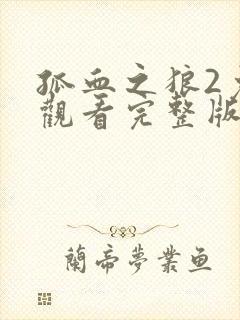 孤血之狼2
觀看完整版
蘭帝夢業鱼